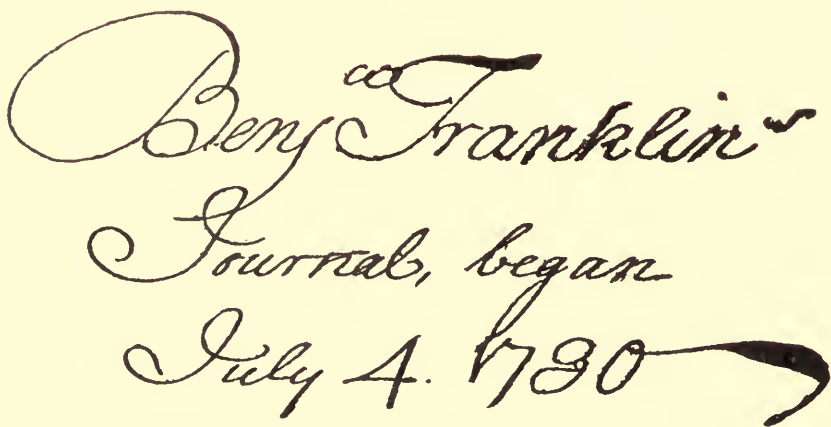 Benjª Franklin's
Journal, began
July 4. 1730